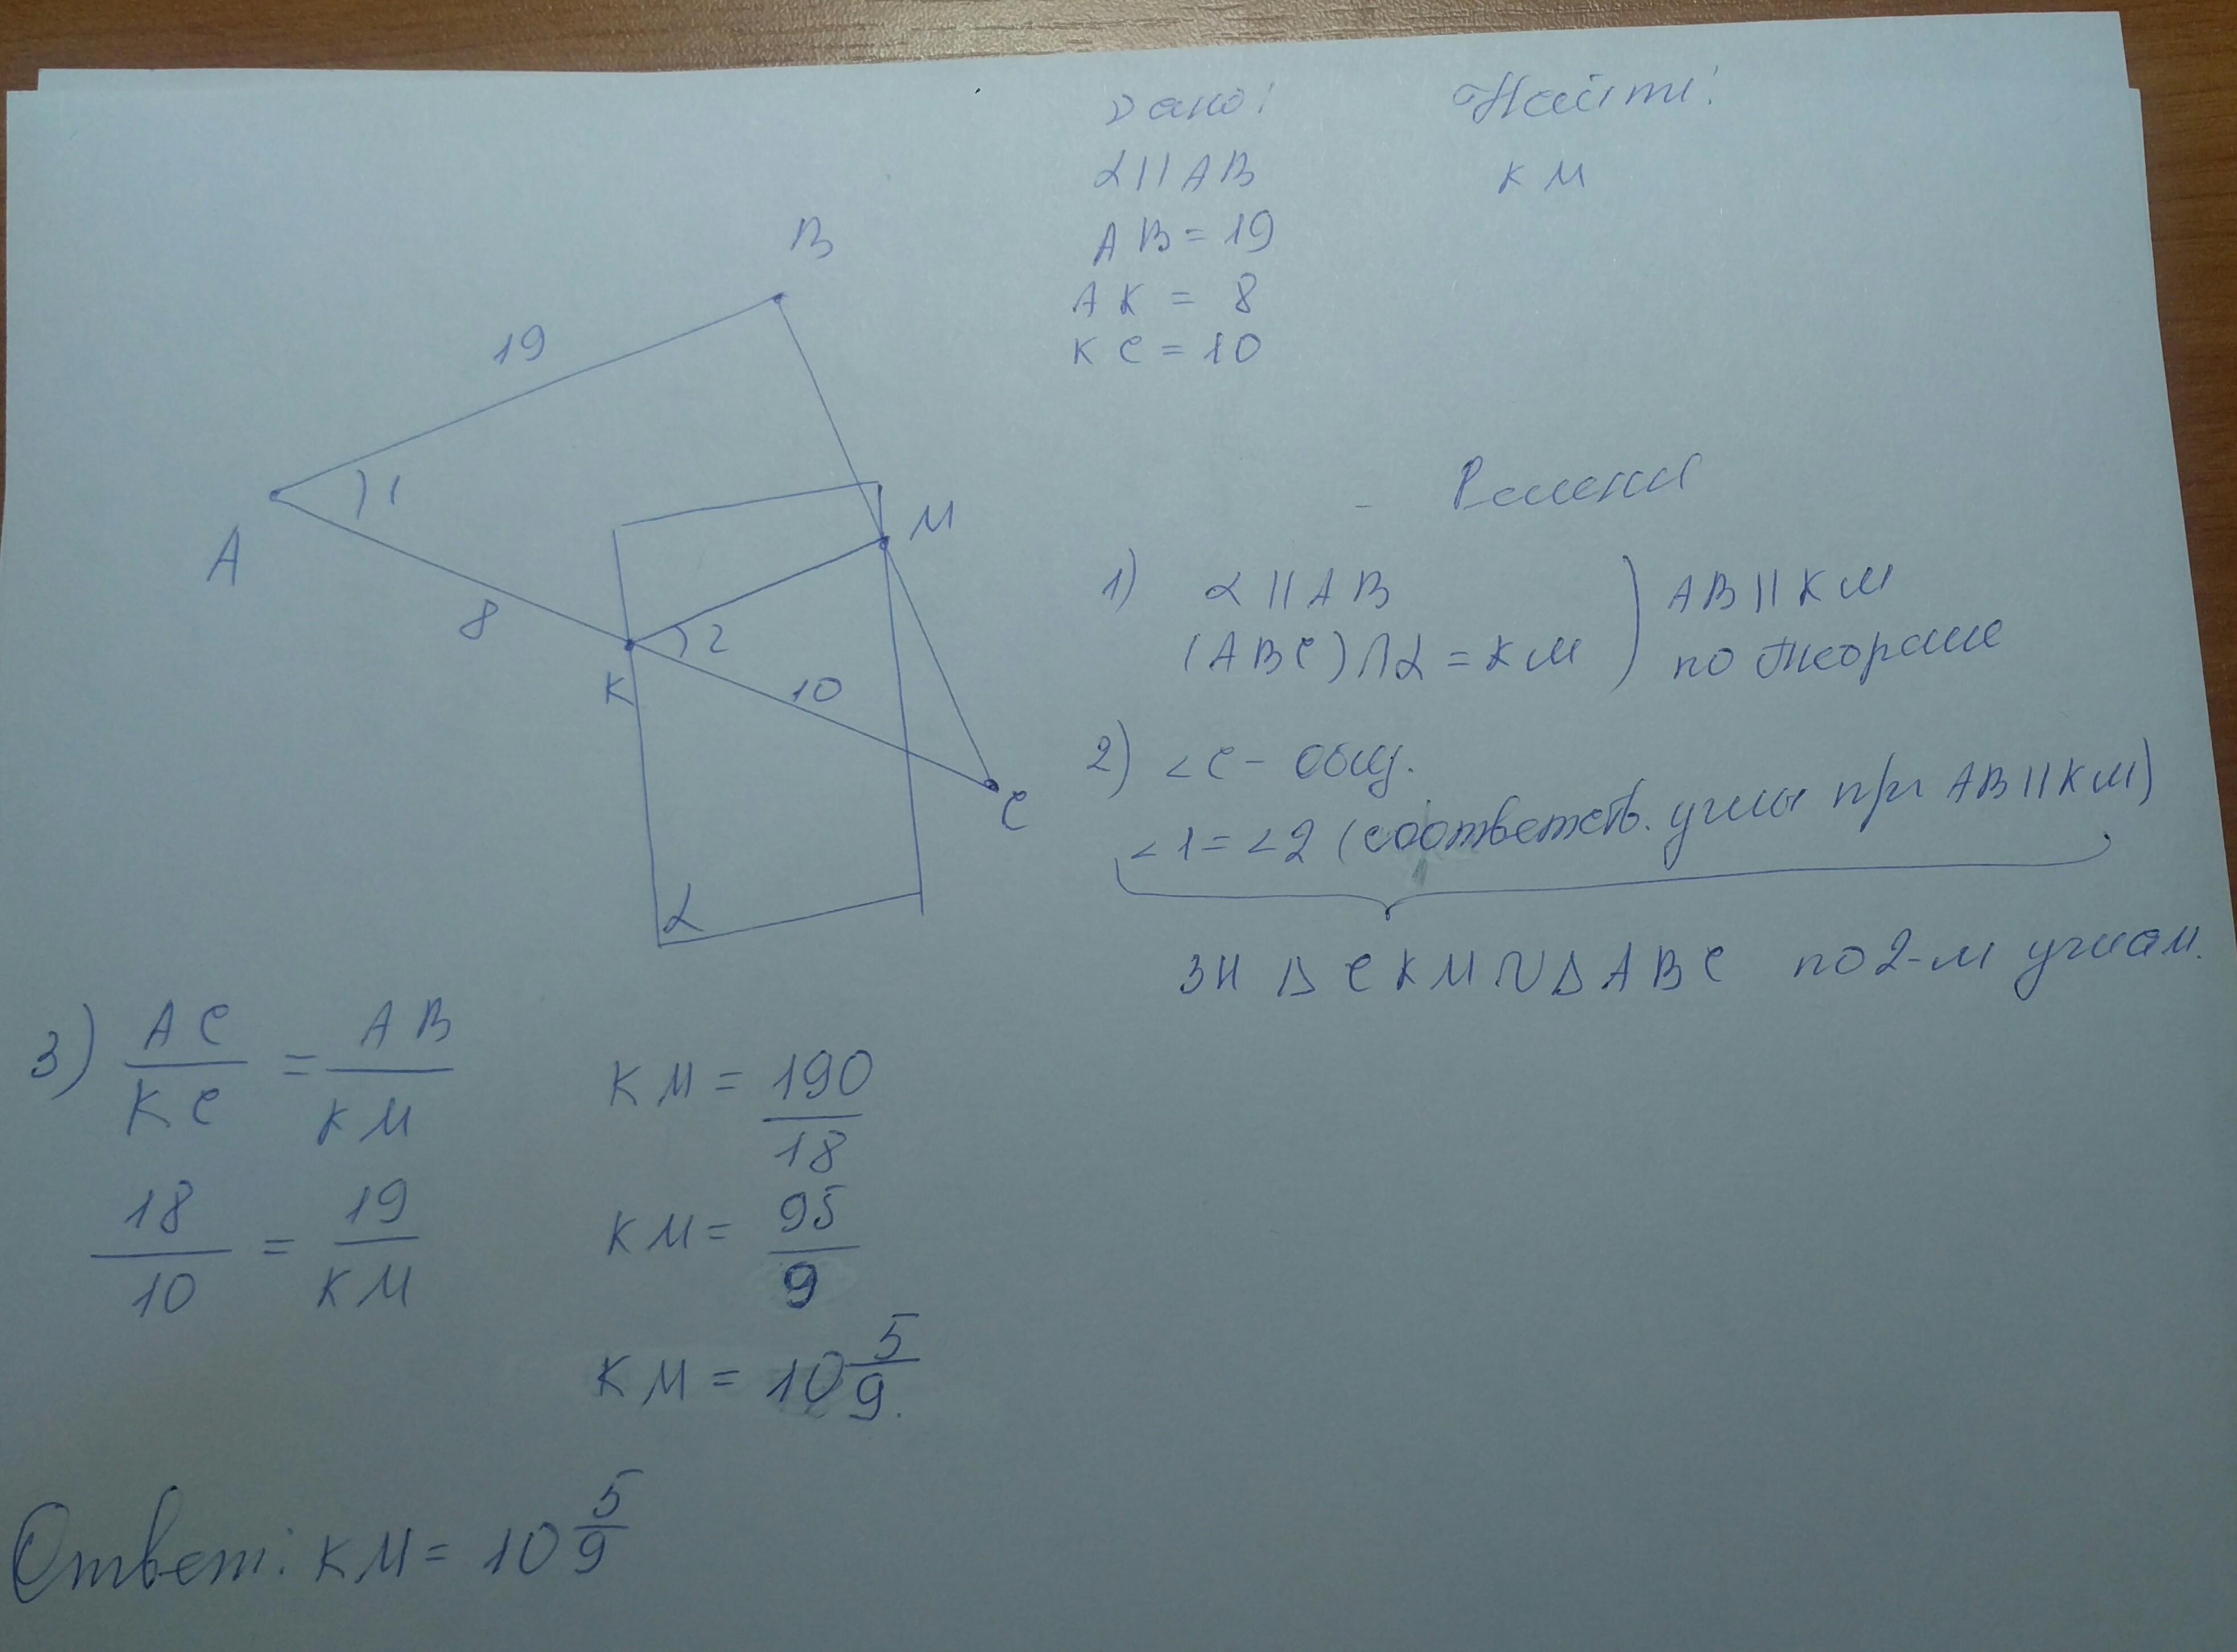 Дано:
α || AB
AB = 19
AK = 8
KC = 10
Найти:
KM
B
19
A
1
M
8
K
2
10
C
α
Решени
1) α || AB
(ABC) ∩ α = KM
AB || KM
по теореме
2) ∠C - общ.
∠1 = ∠2 (соответств. углы при AB || KM)
зн Δ CKM ∾ Δ ABC по 2-м углам.
3) AC/KC = AB/KM
18/10 = 19/KM
KM = 190/18
KM = 95/9
KM = 10 5/9.
Ответ: KM = 10 5/9